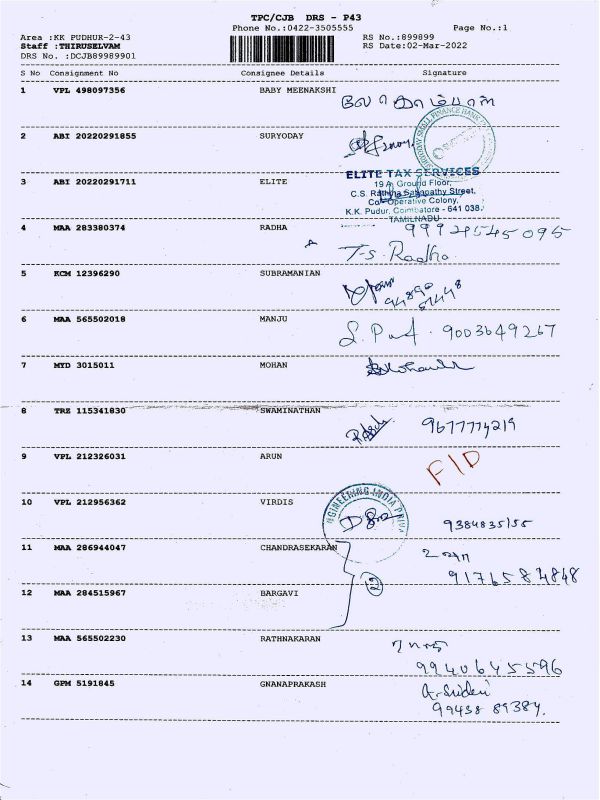 TPC/CJB DRS - P43
Phone No.:0422-3505555 Page No.:1
Area :KK PUDHUR-2-43 RS No.:899899
Staff :THIRUSELVAM RS Date:02-Mar-2022
DRS No. :DCJB89989901
S No Consignment No Consignee Details Signature
1 VPL 498097356 BABY MEENAKSHI
2 ABI 20220291855 SURYODAY
SURYODAY SMALL FINANCE BANK
3 ABI 20220291711 ELITE
ELITE TAX SERVICES
19 A, Ground Floor,
C.S. Rathina Sabapathy Street,
Co-Operative Colony,
K.K. Pudur, Coimbatore - 641 038.
TAMILNADU
4 MAA 283380374 RADHA
T-S. Radha
5 KCM 12396290 SUBRAMANIAN
6 MAA 565502018 MANJU 9003649267
7 MYD 3015011 MOHAN
8 TRZ 115341830 SWAMINATHAN
9 VPL 212326031 ARUN F/D
10 VPL 212956362 VIRDIS 9384835155
NGINEERING INDIA PRIVA
11 MAA 286944047 CHANDRASEKARAN
9176584848
2
12 MAA 284515967 BARGAVI
13 MAA 565502230 RATHNAKARAN
9940645596
14 GPM 5191845 GNANAPRAKASH
99438 89384.